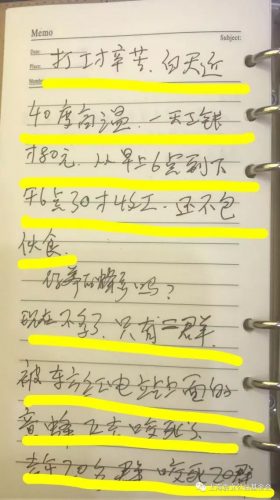 Memo
Subject:
Date:
Place:
打工才辛苦.白天近
40度高温.一天工钱
才80元.从早上6点到下
午6点30才收工.还不包
伙食.
你养的蜂多吗?
现在不多了.只有二群.
被东方红电站上面的
蜂 咬死了
去年20多群 咬死20群